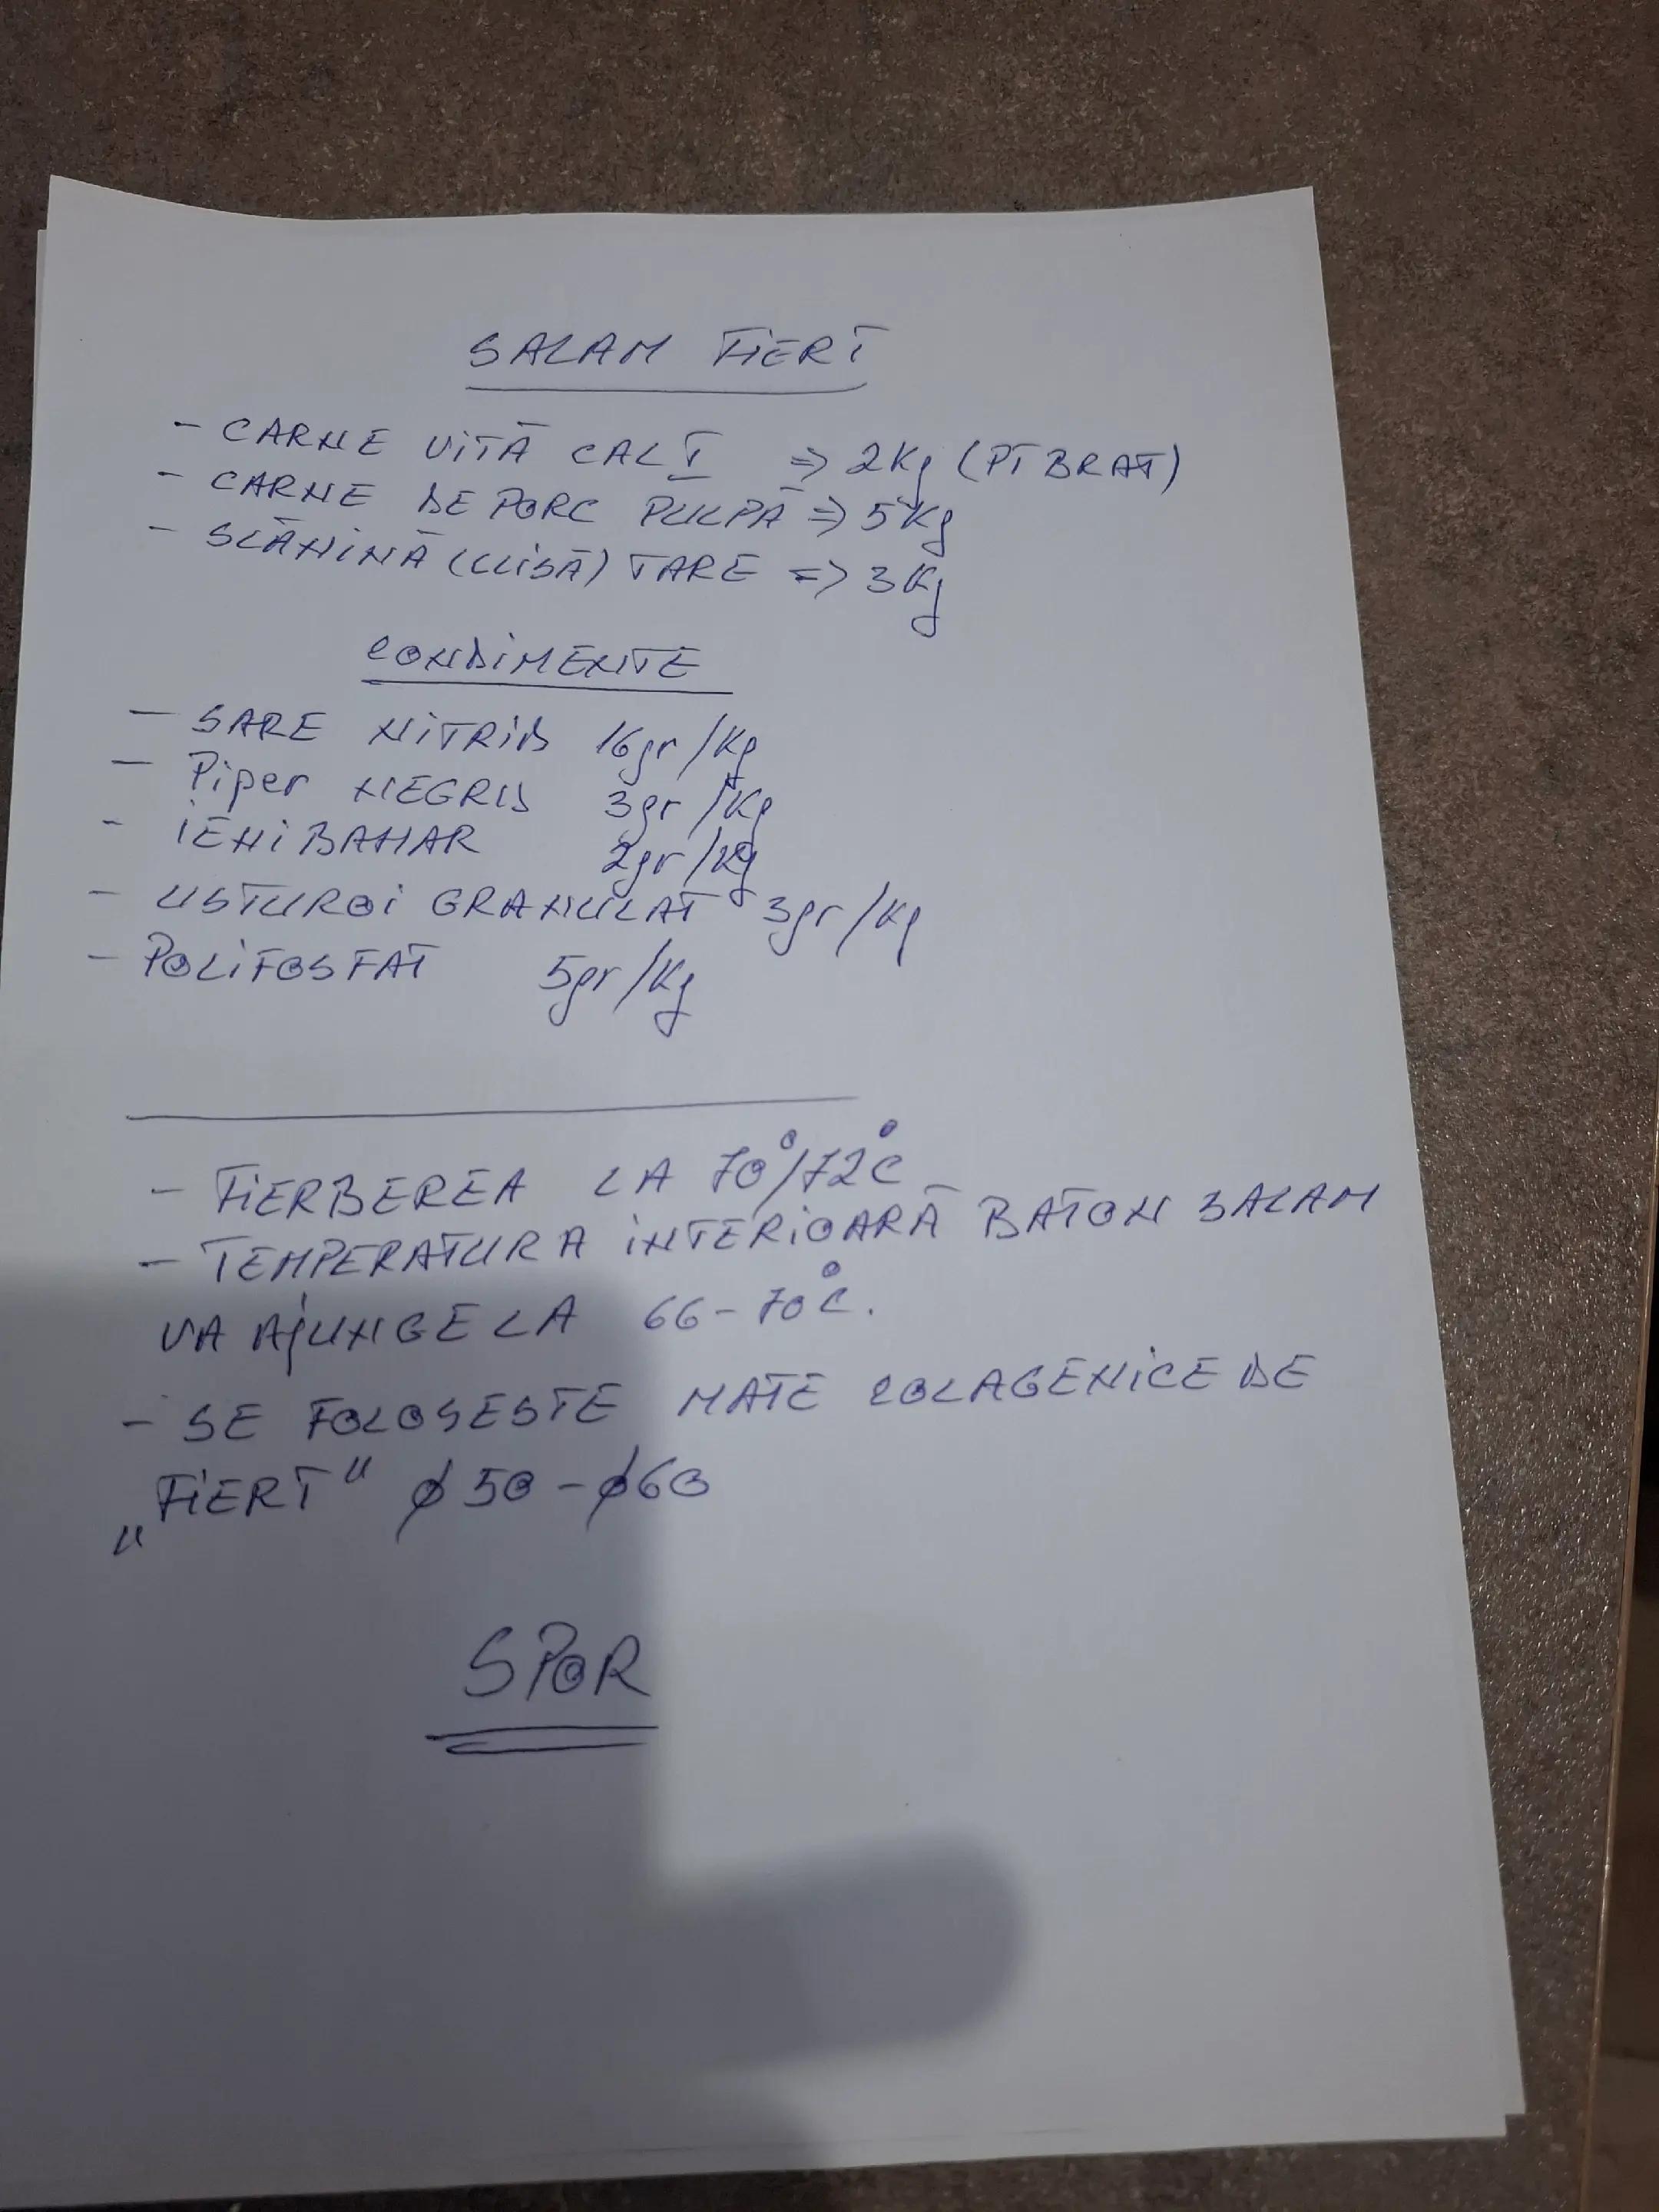 SALAM FIERT
- CARNE VITĂ CAL I => 2Kg (PT BRAT)
- CARNE DE PORC PULPĂ => 5Kg
- SLĂNINĂ (CLISĂ) TARE => 3Kg
CONDIMENTE
- SARE NITRID 16gr/Kg
- Piper NEGRU 3gr/Kg
- IENIBAHAR 2gr/Kg
- USTUROI GRANULAT 3gr/Kg
- POLIFOSFAT 5gr/Kg
- FIERBEREA LA 70°/72°C
- TEMPERATURA INTERIOARĂ BATON SALAM
VA AJUNGE LA 66-70°C.
- SE FOLOSESTE MATE COLAGENICE DE
„FIERT" ø50-ø60
SPOR